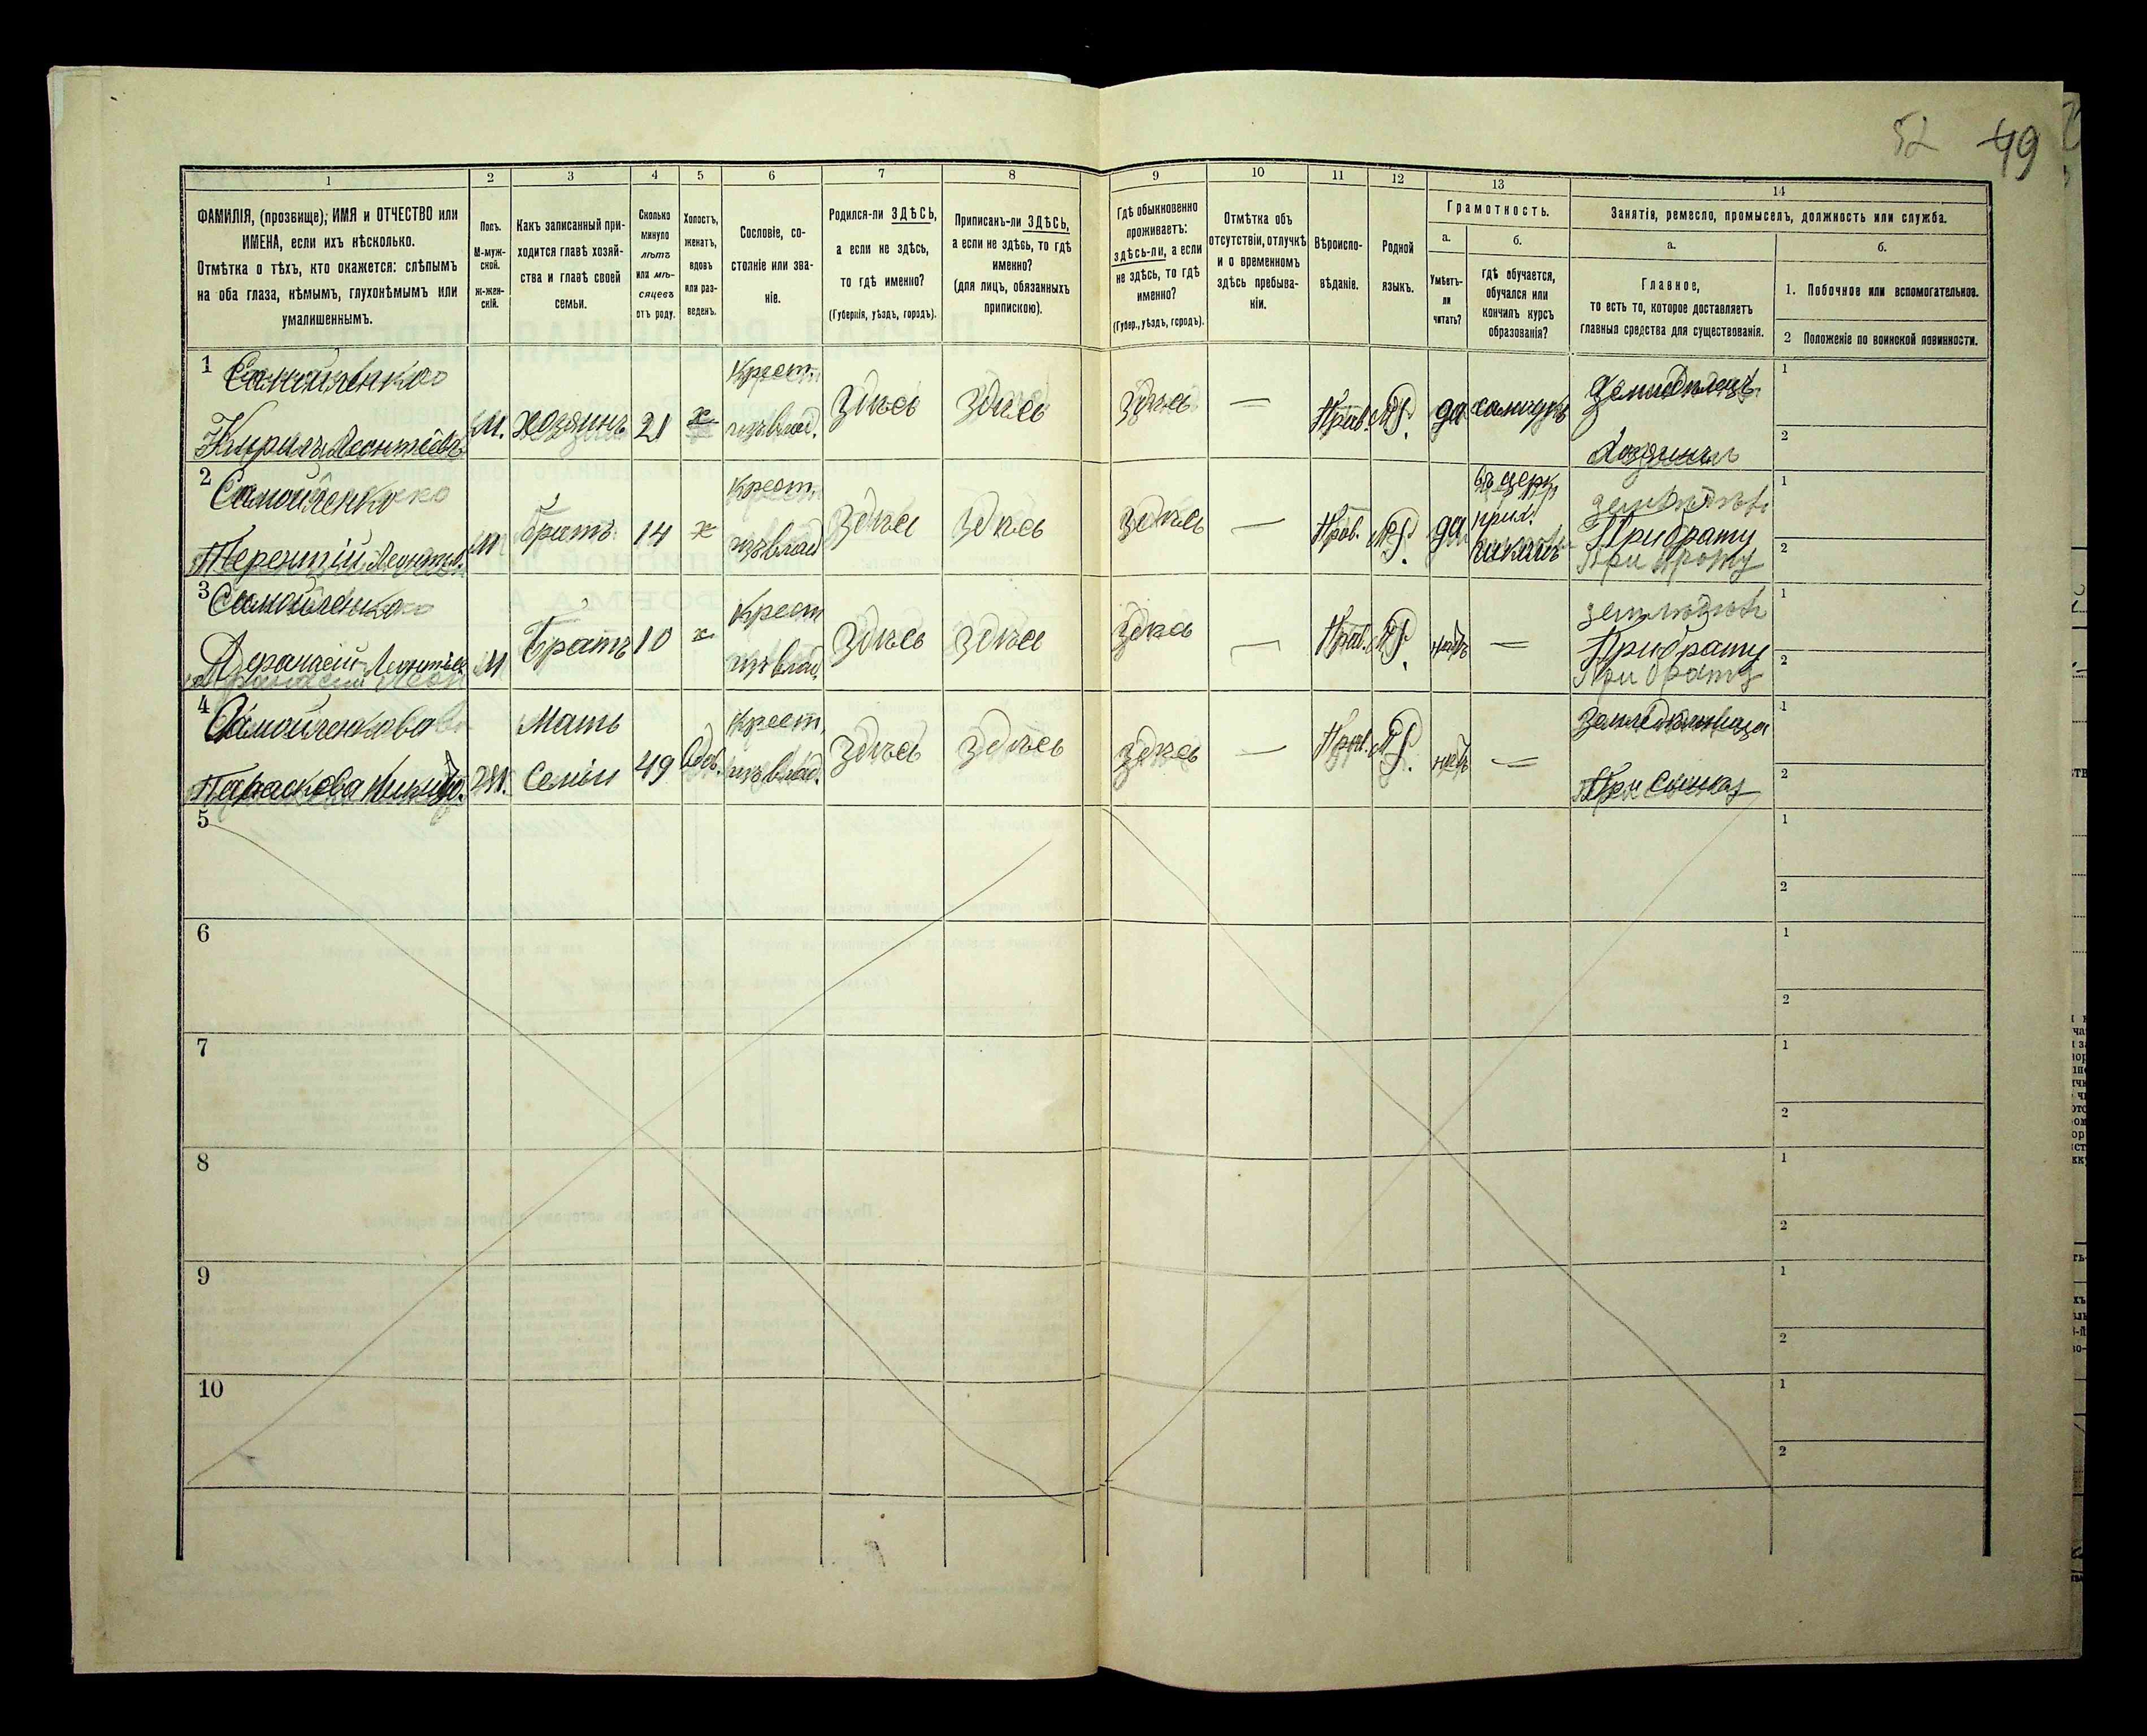 52 49
1 2 3 4 5 6 7 8 9 10 11 12 13 14
ФАМИЛІЯ, (прозвище), ИМЯ и ОТЧЕСТВО или
ИМЕНА, если ихъ нѣсколько.
Отмѣтка о тѣхъ, кто окажется: слѣпымъ
на оба глаза, нѣмымъ, глухонѣмымъ или
умалишеннымъ.
Полъ.
М-муж-
ской.
Ж-жен-
скій.
Какъ записанный при-
ходится главѣ хозяй-
ства и главѣ своей
семьи.
Сколько
минуло
лѣтъ
или мѣ-
сяцевъ
отъ роду.
Холостъ,
женатъ,
вдовъ
или раз-
веденъ.
Сословіе, со-
стояніе или зва-
ніе.
Родился-ли ЗДѢСЬ,
а если не здѣсь,
то гдѣ именно?
(Губернія, уѣздъ, городъ).
Приписанъ-ли ЗДѢСЬ,
а если не здѣсь, то гдѣ
именно?
(для лицъ, обязанныхъ
припискою).
Гдѣ обыкновенно
проживаетъ:
здѣсь-ли, а если
не здѣсь, то гдѣ
именно?
(Губер., уѣздъ, городъ).
Отмѣтка объ
отсутствіи, отлучкѣ
и о временномъ
здѣсь пребыва-
ніи.
Вѣроиспо-
вѣданіе.
Родной
языкъ.
Грамотность.
а.
Умѣетъ-
ли
читать?
б.
гдѣ обучается,
обучался или
кончилъ курсъ
образованія?
Занятія, ремесло, промыселъ, должность или служба.
а.
Главное,
то есть то, которое доставляетъ
главныя средства для существованія.
б.
1. Побочное или вспомогательное.
2 Положеніе по воинской повинности.
1 Самойленко Крест. Земледѣлецъ 1
Кирилъ Леонтіевъ М. хозяинъ 21 х изъ влад. Здѣсь Здѣсь Здѣсь — Прав. М.Р. да самоучкъ Хозяинъ 2
2 Самойленко Крест. въ церк. земледѣлъ 1
Терентій Леонтьев. М братъ 14 х изъ влад Здѣсь Здѣсь Здѣсь — Прав. М.Р. да прих. школѣ При брату 2
При брату
3 Самойленко Крест земледѣл 1
Афанасій Леонтьев М Братъ 10 х изъ влад. Здѣсь Здѣсь Здѣсь — Прав. М.Р. нѣтъ — При брату 2
При брату
4 Самойленкова Мать Крест. Земледѣлица 1
Параскова Никит. Ж. семьи 49 вдов. изъ влад. Здѣсь Здѣсь Здѣсь — Прав. М.Р. нѣтъ — При сынах 2
5 1
2
6 1
2
7 1
2
8 1
2
9 1
2
10 1
2